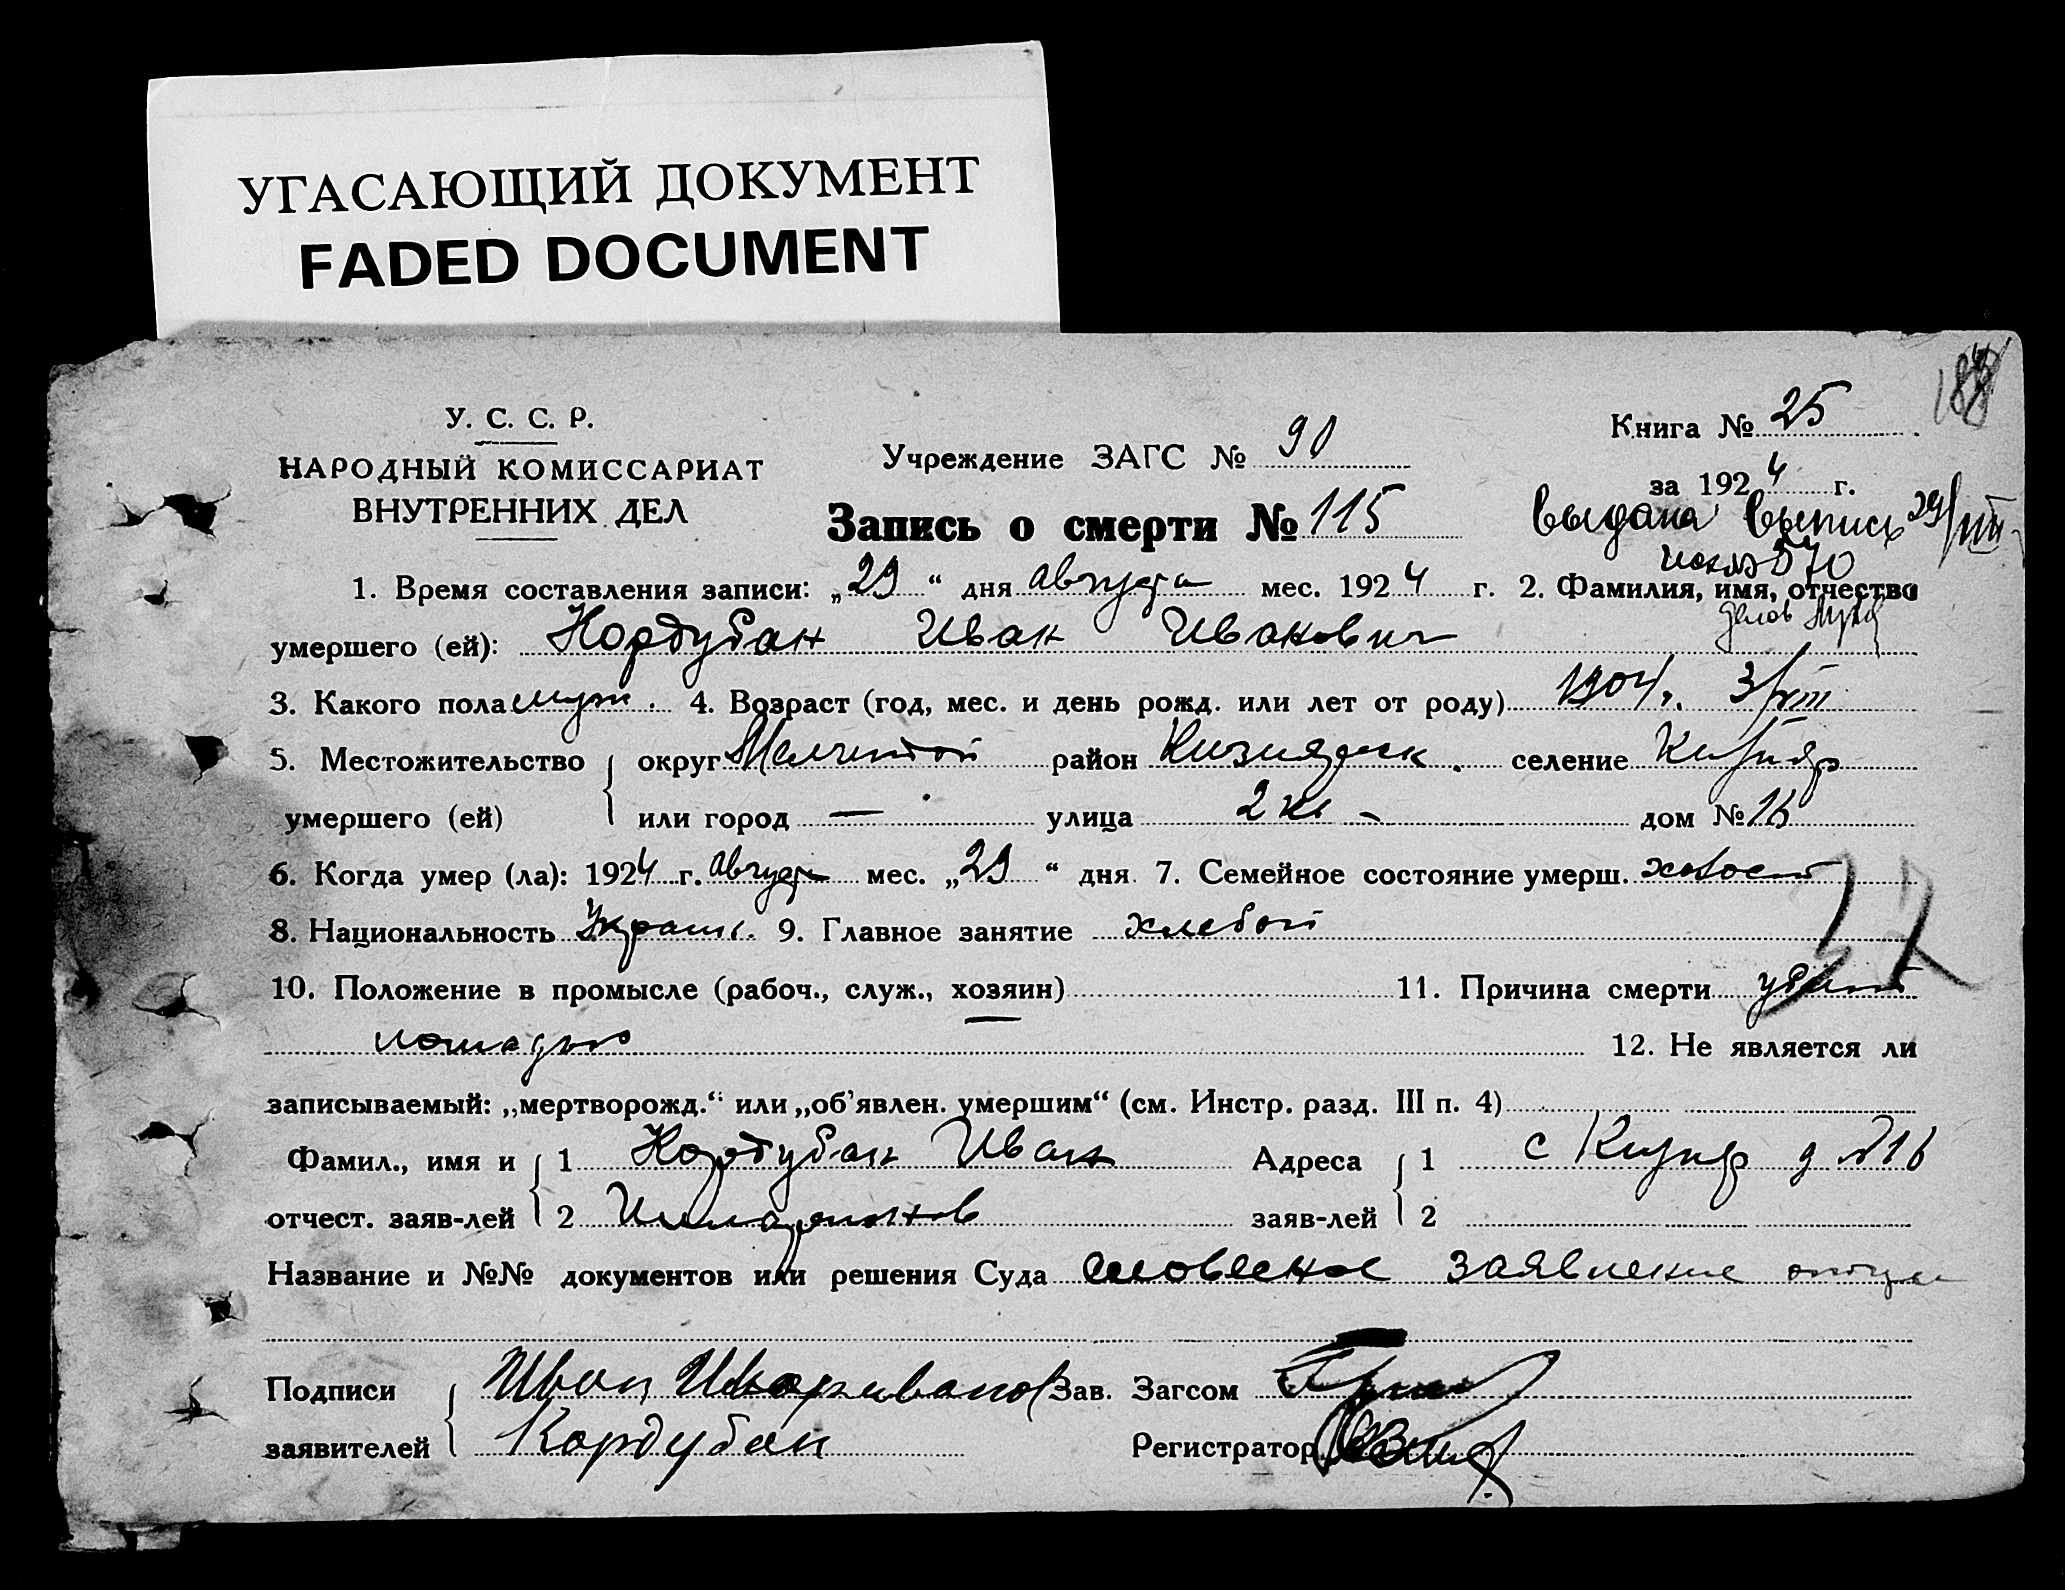 УГАСАЮЩИЙ ДОКУМЕНТ
FADED DOCUMENT
У. С. С. Р.
НАРОДНЫЙ КОМИССАРИАТ
ВНУТРЕННИХ ДЕЛ
Учреждение ЗАГС № 90
Книга № 25
за 1924 г.
Запись о смерти № 115
выдана выпись 29/VIII
570
1. Время составления записи: „29“ дня августа мес. 1924 г. 2. Фамилия, имя, отчество
умершего (ей): Кордубан Иван Иванович
3. Какого пола муж. 4. Возраст (год, мес. и день рожд. или лет от роду) 1904 г. 3/VIII
5. Местожительство округ район селение
умершего (ей) или город — улица 2 дом № 16
6. Когда умер (ла): 1924 г. августа мес. „29“ дня 7. Семейное состояние умерш. холост
8. Национальность Украин. 9. Главное занятие хлебоп
10. Положение в промысле (рабоч., служ., хозяин) — 11. Причина смерти убит
лошадью 12. Не является ли
записываемый: „мертворожд.“ или „об'явлен. умершим“ (см. Инстр. разд. III п. 4)
Фамил., имя и 1 Кордубан Иван Адреса 1 с д № 16
отчест. заяв-лей 2 заяв-лей 2
Название и №№ документов или решения Суда словесное заявление отца
Подписи Иван Зав. Загсом
заявителей Кордубан Регистратор